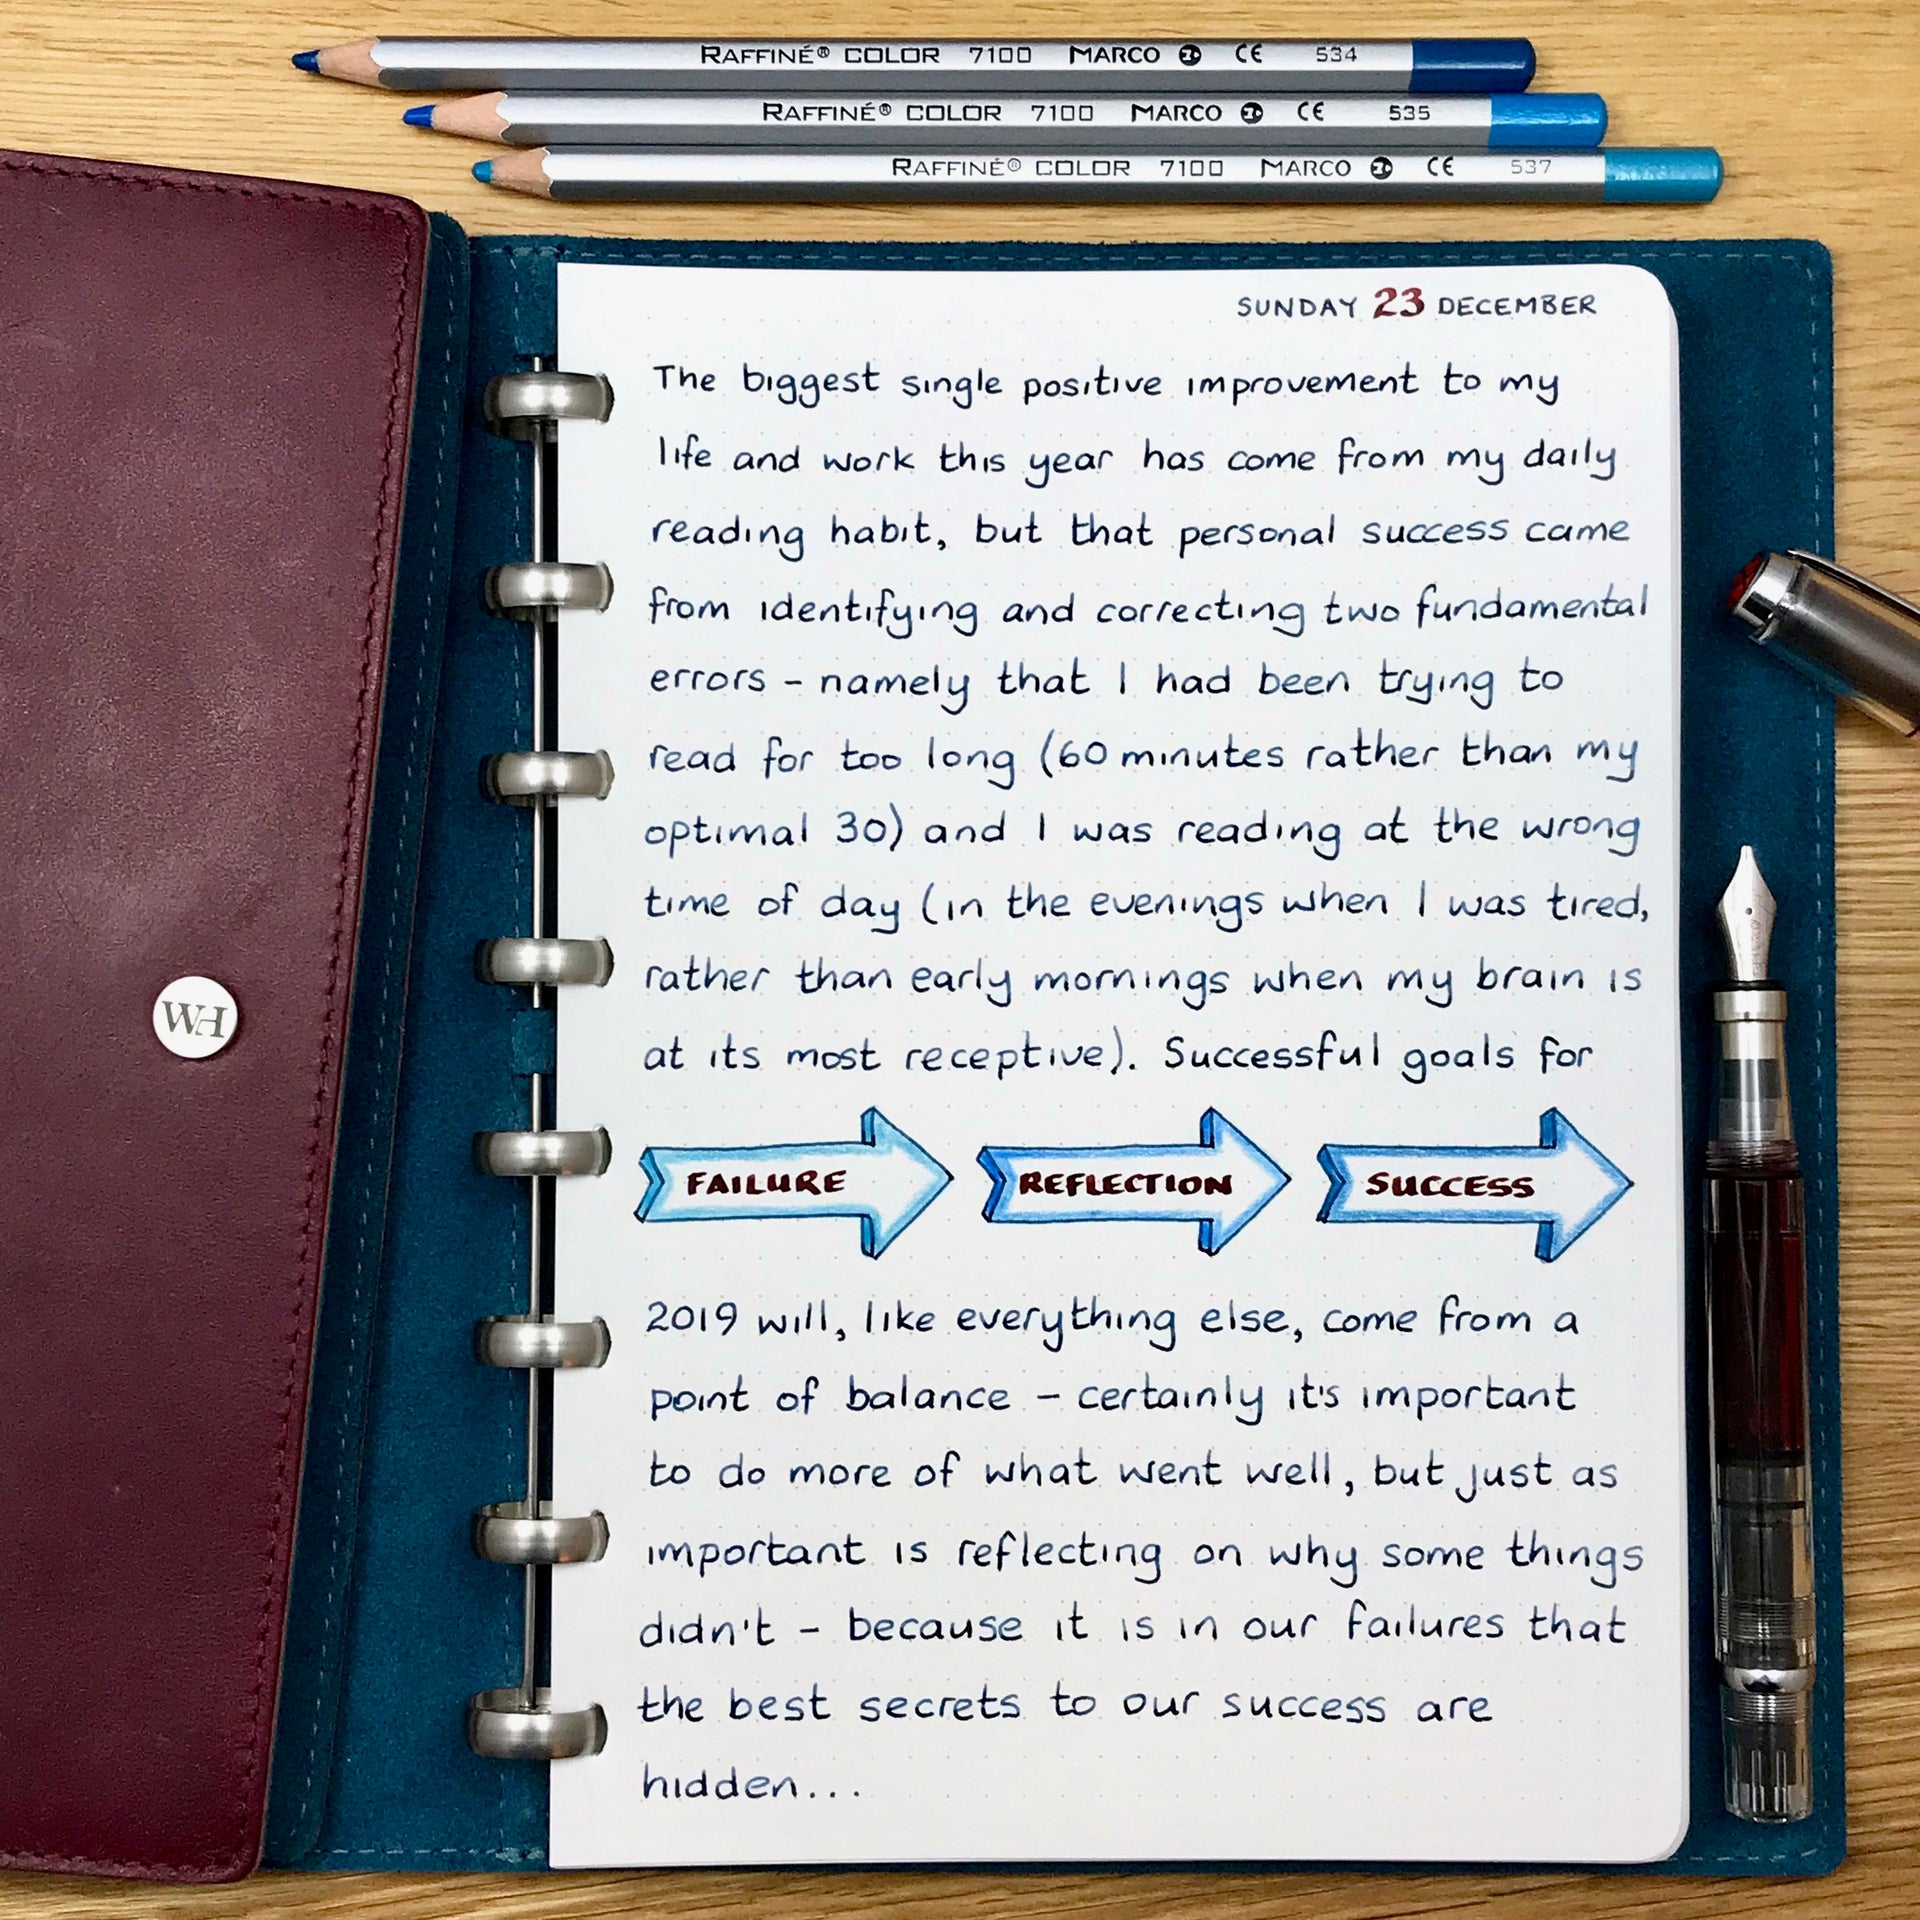 RAFFINÉ® COLOR 7100 MARCO CE 534
RAFFINÉ® COLOR 7100 MARCO CE 535
RAFFINÉ® COLOR 7100 MARCO CE 537
SUNDAY 23 DECEMBER
The biggest single positive improvement to my
life and work this year has come from my daily
reading habit, but that personal success came
from identifying and correcting two fundamental
errors – namely that I had been trying to
read for too long (60 minutes rather than my
optimal 30) and I was reading at the wrong
time of day (in the evenings when I was tired,
rather than early mornings when my brain is
at its most receptive). Successful goals for
FAILURE REFLECTION SUCCESS
2019 will, like everything else, come from a
point of balance – certainly it's important
to do more of what went well, but just as
important is reflecting on why some things
didn't – because it is in our failures that
the best secrets to our success are
hidden...
WH